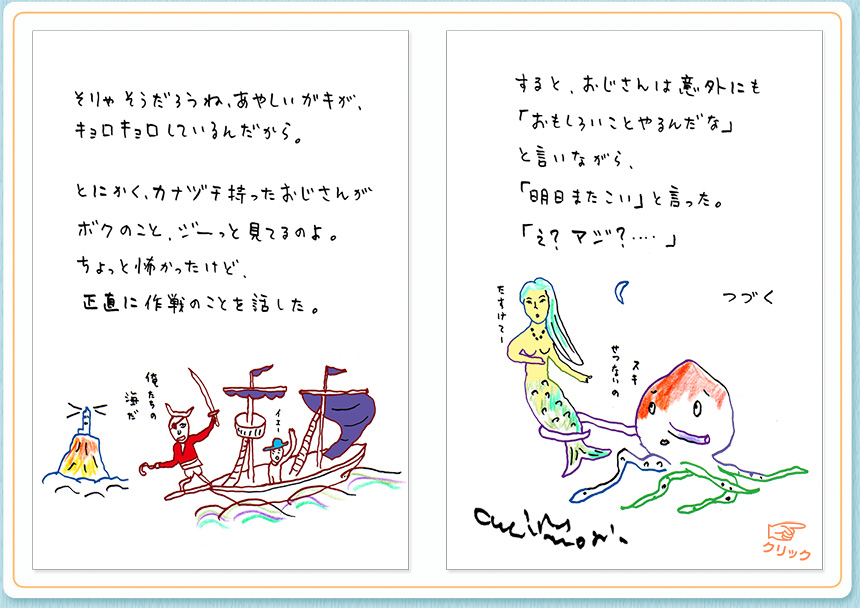 そりゃ そうだろうね、あやしいガキが、
キョロキョロしているんだから。
とにかく、カナヅチ持ったおじさんが
ボクのこと、ジーっと見てるのよ。
ちょっと怖かったけど、
正直に作戦のことを話した。
俺たちの
海だ
イエー
すると、おじさんは意外にも
「おもしろいことやるんだな」
と言いながら、
「明日またこい」と言った。
「え？マジ？‥‥」
つづく
たすけてー
スキ
せつないの
クリック